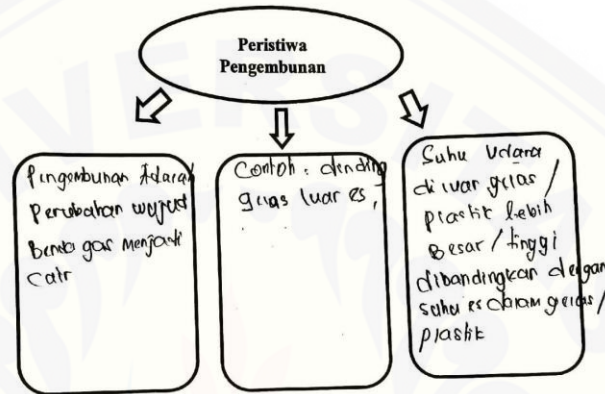 Peristiwa
Pengembunan
Pingembunan Adarah
Perubahan wujud
Benda gas menjadi
Cair
Contoh : dending
gelas luar es,
Suhu Udara
diluar gelas /
Plastik Lebih
Besar / tinggi
dibandingkan dengan
suhu es dalam gelas /
Plastik